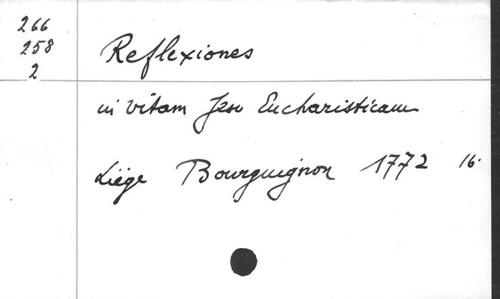 266
258
2
Reflexiones
in vitam Jesu Eucharisticam
Liège Bourguignon 1772 16.